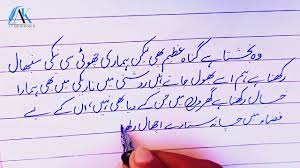 وہ بخشتا ہے گناہ عظیم بھی لیکن ہماری چھوٹی سی نیکی سنبھال
رکھتا ہے ہم اسے بھول جاتے ہیں روشنی میں تاریکی میں بھی ہمارا
خیال رکھتا ہے گھروں میں جن کے دیا بھی نہیں ان کے لیے
فضاء میں چاند ستارے اچھال رکھ